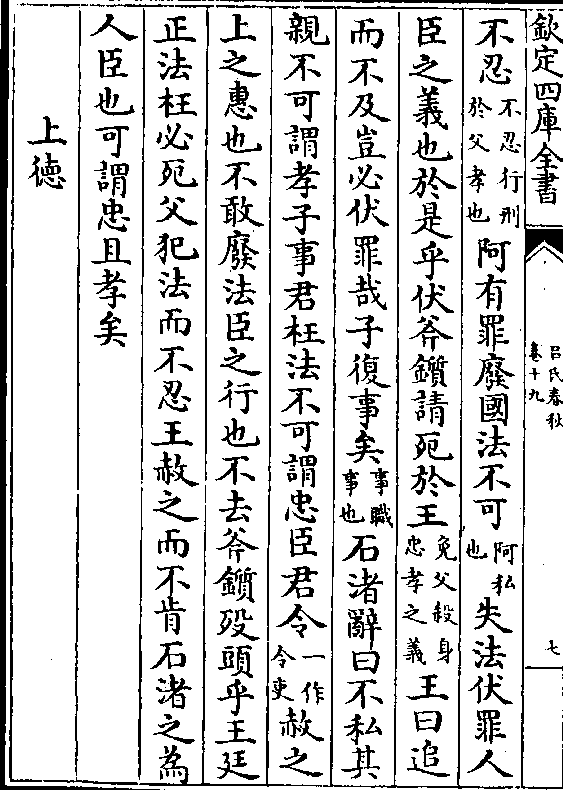 欽定四庫全書
呂氏春秋
卷十九
七
不忍不忍行刑於父孝也阿有罪廢國法不可阿私也失法伏罪人
臣之義也於是乎伏斧鑕請死於王免父殺身忠孝之義王曰追
而不及豈必伏罪哉子復事矣事職事也石渚辭曰不私其
親不可謂孝子事君枉法不可謂忠臣君令一作令吏赦之
上之惠也不敢廢法臣之行也不去斧鑕歿頭乎王廷
正法枉必死父犯法而不忍王赦之而不肯石渚之為
人臣也可謂忠且孝矣
上徳